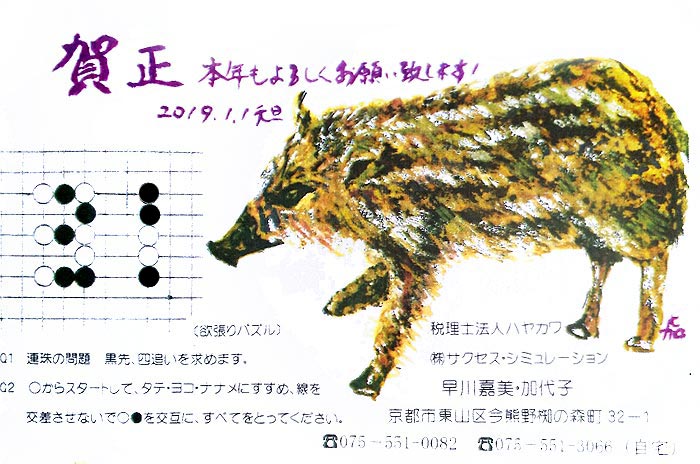 賀正 本年もよろしくお願い致します!
2019.1.1元旦
(欲張りパズル)
Q1 連珠の問題 黒先、四追いを求めます。
Q2 ○からスタートして、タテ・ヨコ・ナナメにすすめ、線を
交差させないで○●を交互に、すべてをとってください。
税理士法人ハヤカワ
㈱サクセス・シミュレーション
早川嘉美・加代子
京都市東山区今熊野椥の森町32-1
☎075-551-0082 ☎075-551-3066(自宅)